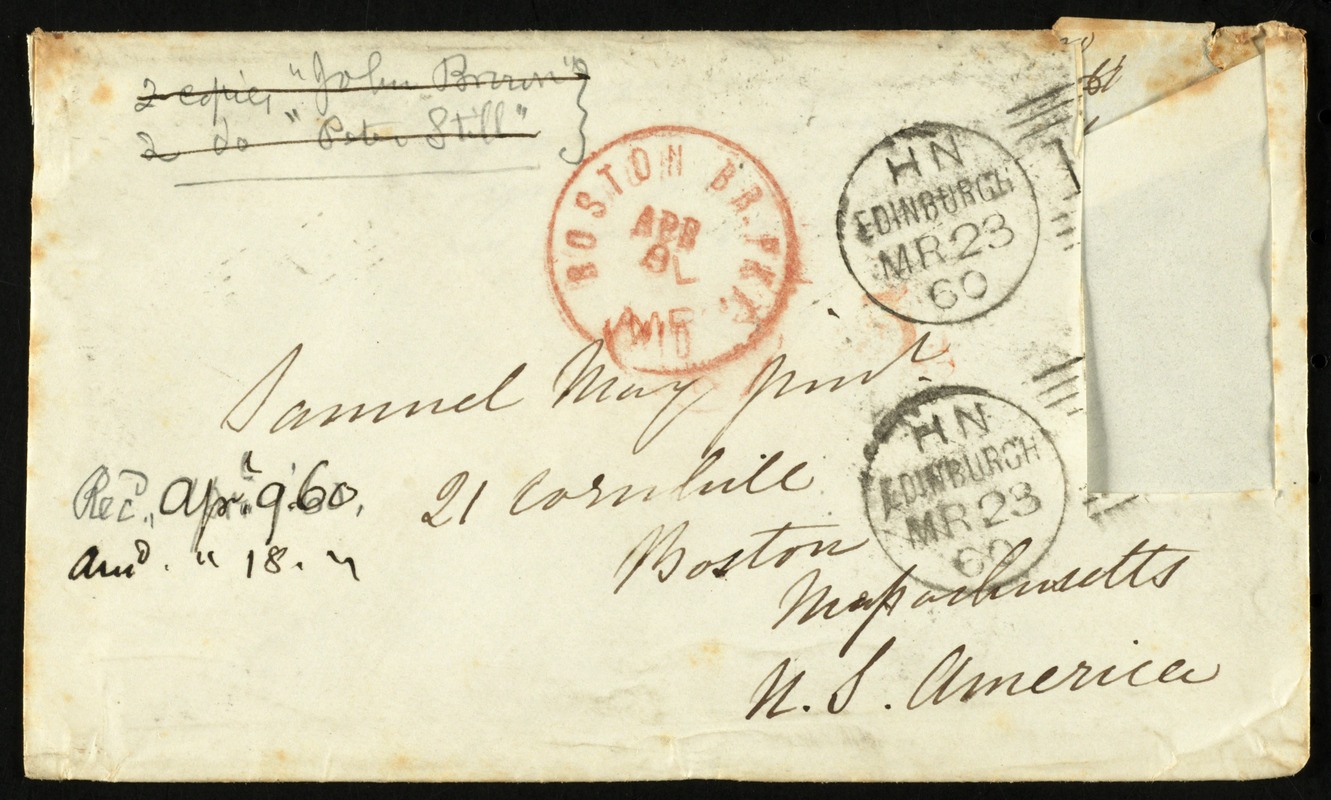 2 copies "John Brown"
2 do "Peter Still"
BOSTON BR. PKT.
APR
HN
EDINBURGH
MR 23
60
Samuel May junr.
HN
EDINBURGH
MR 23
60
21 Cornhill
Recd. Apr. 9. 60.
Boston
Ansd. " 18. "
Massachusetts
U. S. America